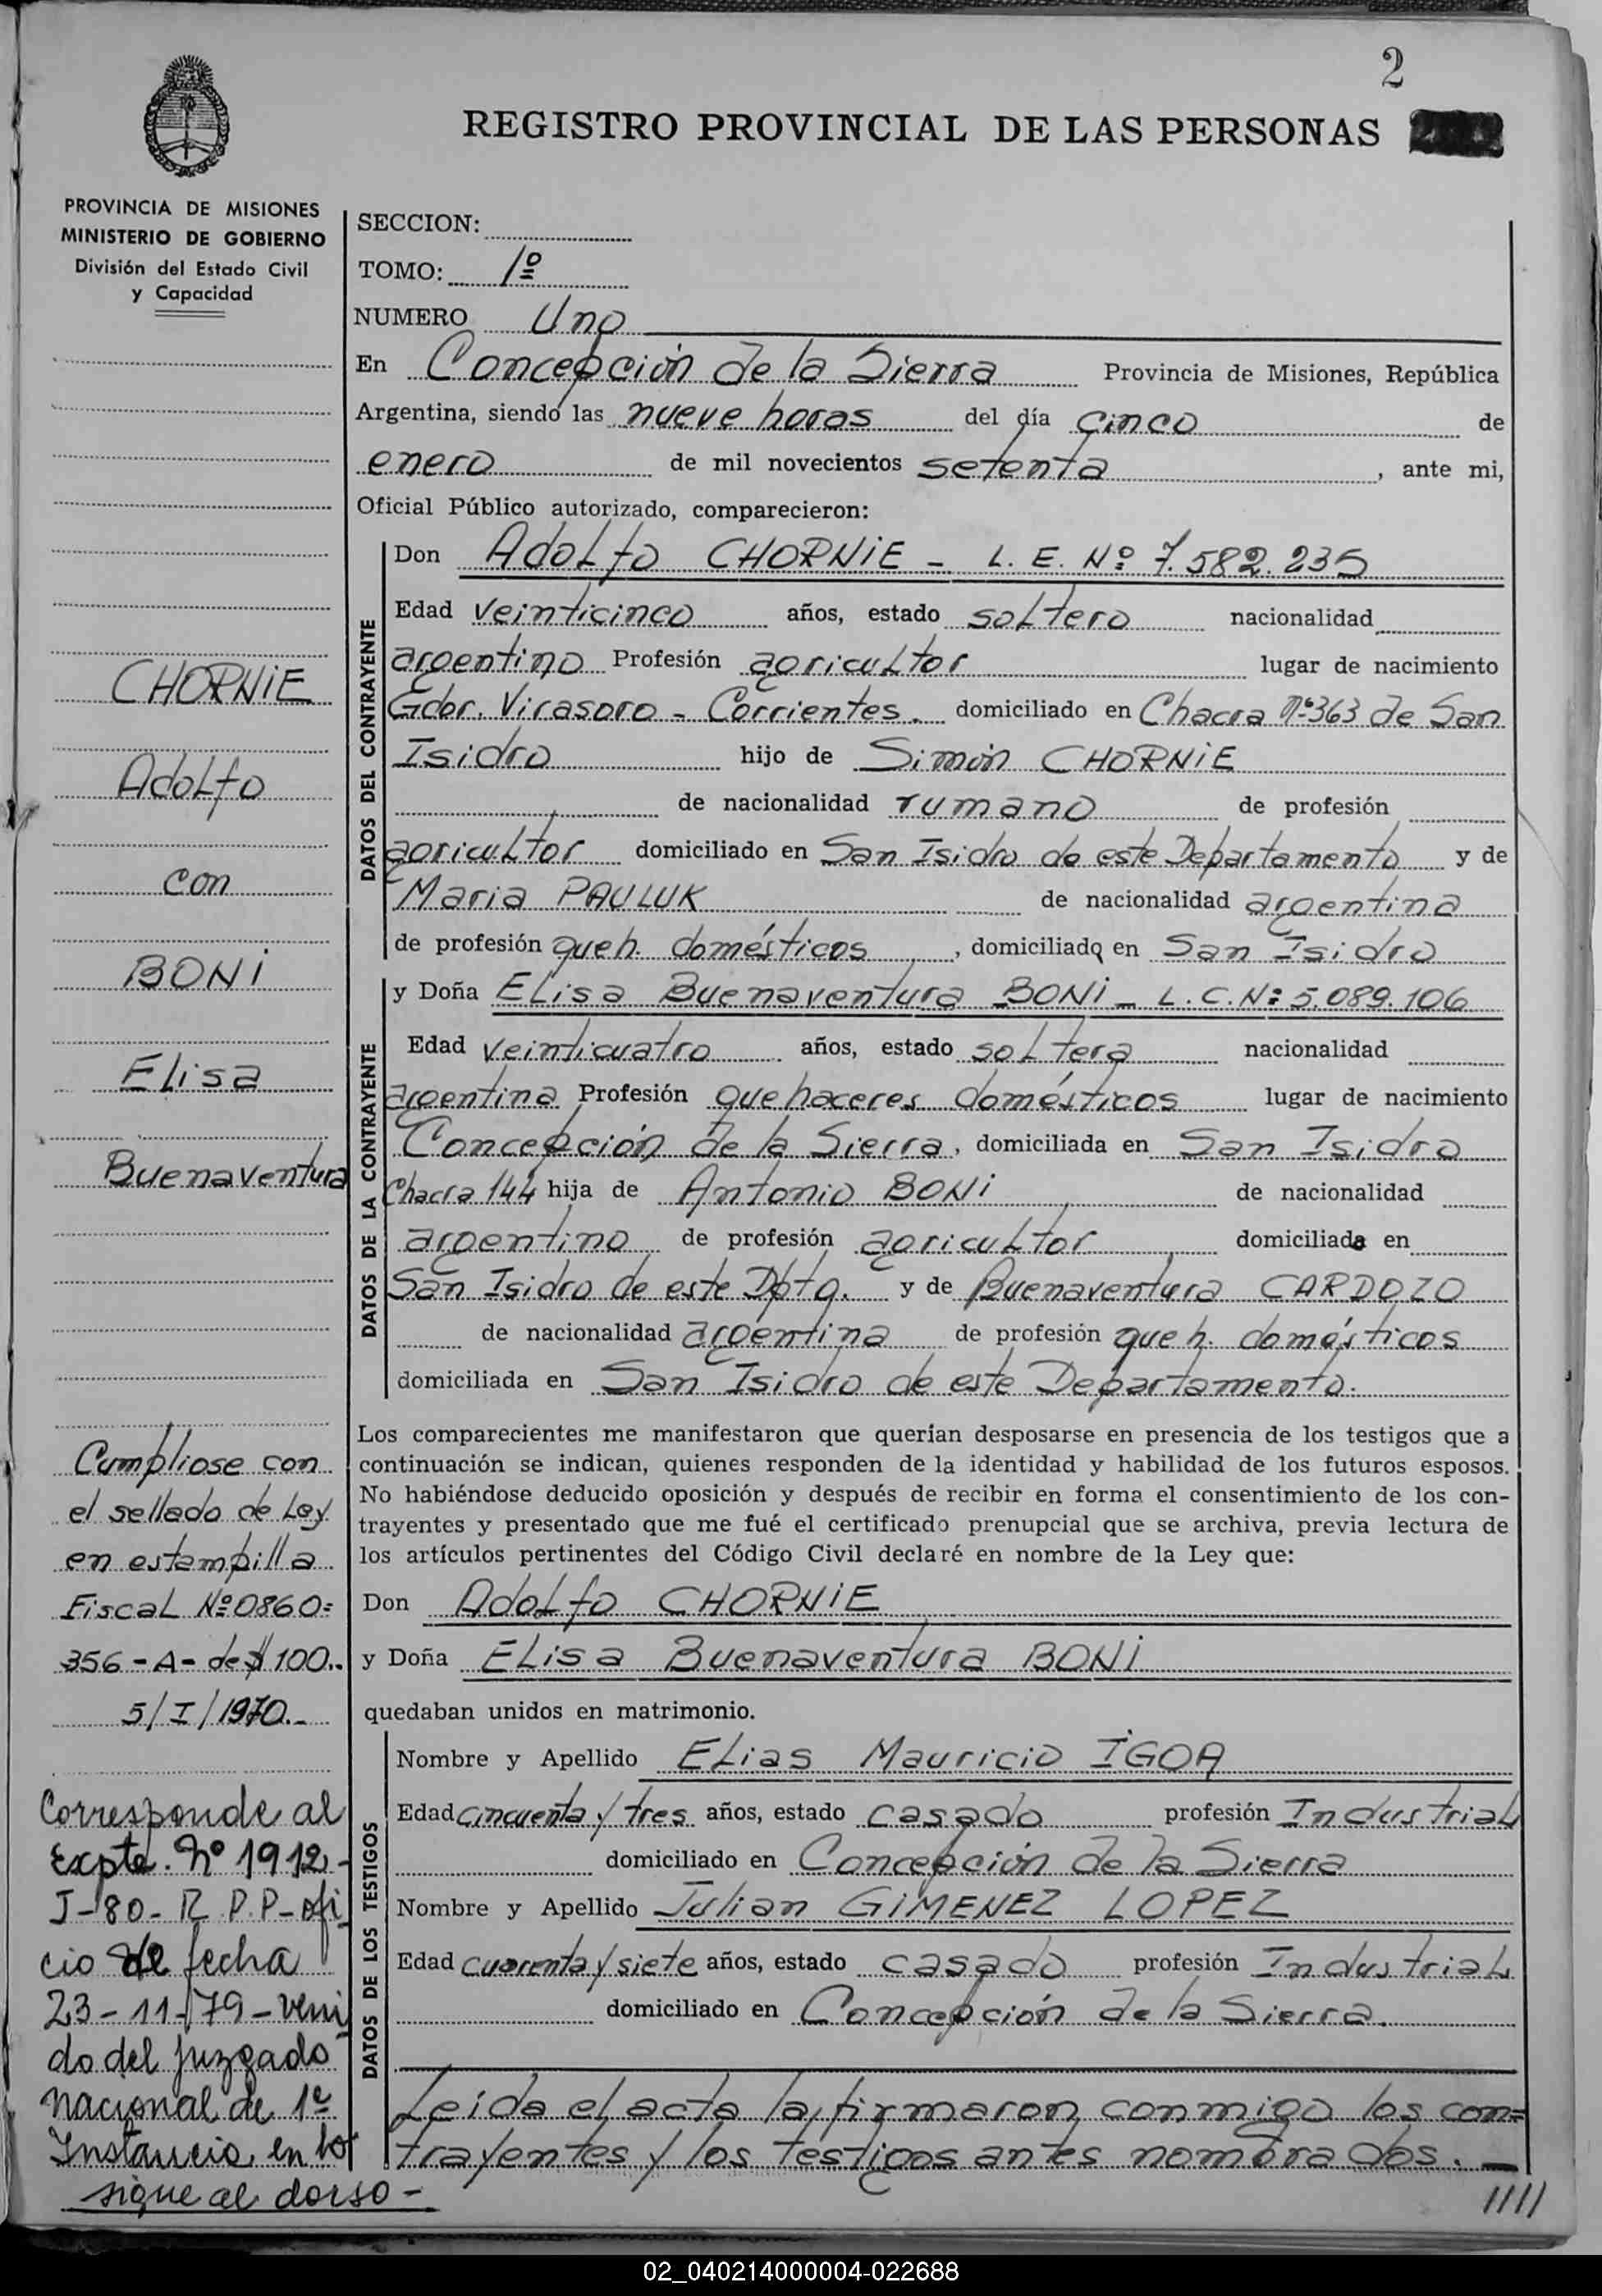 2
REGISTRO PROVINCIAL DE LAS PERSONAS
PROVINCIA DE MISIONES
MINISTERIO DE GOBIERNO
División del Estado Civil
y Capacidad
CHORNIE
Adolfo
con
BONI
Elisa
Buenaventura
Cumpliose con
el sellado de Ley
en estampilla
Fiscal Nº 0860=
356-A- de $ 100..
5/I/1970.-
Corresponde al
Expte. Nº 1912-
J-80- R.P.P- ofi
cio de fecha
23-11-79- veni
do del juzgado
nacional de 1º
Instancia en lo
sigue al dorso-
SECCION:
TOMO: 1º
NUMERO Uno
En Concepción de la Sierra Provincia de Misiones, República
Argentina, siendo las nueve horas del día cinco de
enero de mil novecientos setenta, ante mi,
Oficial Público autorizado, comparecieron:
DATOS DEL CONTRAYENTE
Don Adolfo CHORNIE - L. E. Nº 7.582.235
Edad veinticinco años, estado soltero nacionalidad
argentino Profesión agricultor lugar de nacimiento
Gdor. Virasoro - Corrientes. domiciliado en Chacra Nº363 de San
Isidro hijo de Simón CHORNIE
de nacionalidad rumano de profesión
agricultor domiciliado en San Isidro de este Departamento y de
Maria PAULUK de nacionalidad argentina
de profesión queh. domésticos, domiciliado en San Isidro
DATOS DE LA CONTRAYENTE
y Doña Elisa Buenaventura BONI - L.C.Nº 5.089.106
Edad veinticuatro años, estado soltera nacionalidad
argentina Profesión quehaceres domésticos lugar de nacimiento
Concepción de la Sierra, domiciliada en San Isidro
Chacra 144 hija de Antonio BONI de nacionalidad
argentino de profesión agricultor domiciliado en
San Isidro de este Dpto. y de Buenaventura CARDOZO
de nacionalidad argentina de profesión queh. domésticos
domiciliada en San Isidro de este Departamento.
Los comparecientes me manifestaron que querían desposarse en presencia de los testigos que a
continuación se indican, quienes responden de la identidad y habilidad de los futuros esposos.
No habiéndose deducido oposición y después de recibir en forma el consentimiento de los con-
trayentes y presentado que me fué el certificado prenupcial que se archiva, previa lectura de
los artículos pertinentes del Código Civil declaré en nombre de la Ley que:
Don Adolfo CHORNIE
y Doña Elisa Buenaventura BONI
quedaban unidos en matrimonio.
DATOS DE LOS TESTIGOS
Nombre y Apellido Elias Mauricio IGOA
Edad cincuenta y tres años, estado casado profesión Industrial
domiciliado en Concepción de la Sierra
Nombre y Apellido Julian GIMENEZ LOPEZ
Edad cuarenta y siete años, estado casado profesión Industrial
domiciliado en Concepción de la Sierra.
Leida el acta la firmaron conmigo los con=
trayentes y los testigos antes nombrados. -
////
02_040214000004-022688